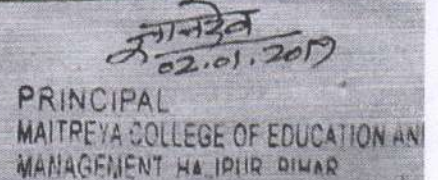 ज्ञानदेव
02.01.2019
PRINCIPAL
MAITREYA COLLEGE OF EDUCATION AN
MANAGEMENT HAJIPUR BIHAR